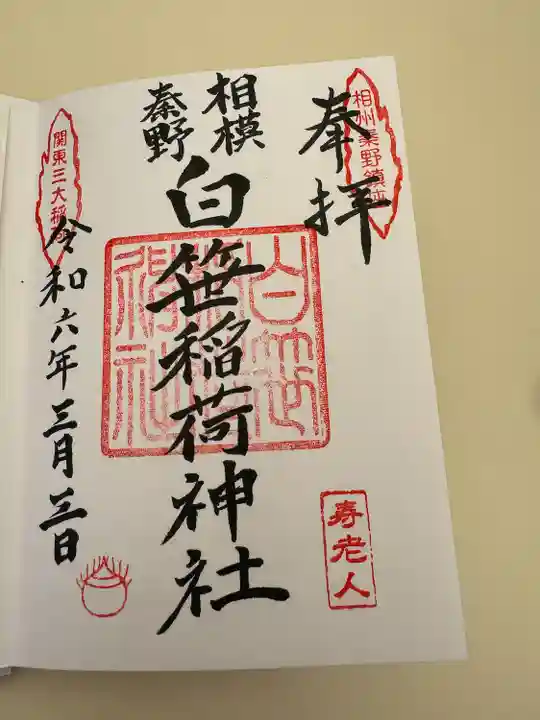 奉拝
相州秦野鎮座
相模
秦野
白笹稲荷神社
白笹
稲荷
神社
関東三大稲荷
令和六年三月三日
寿老人